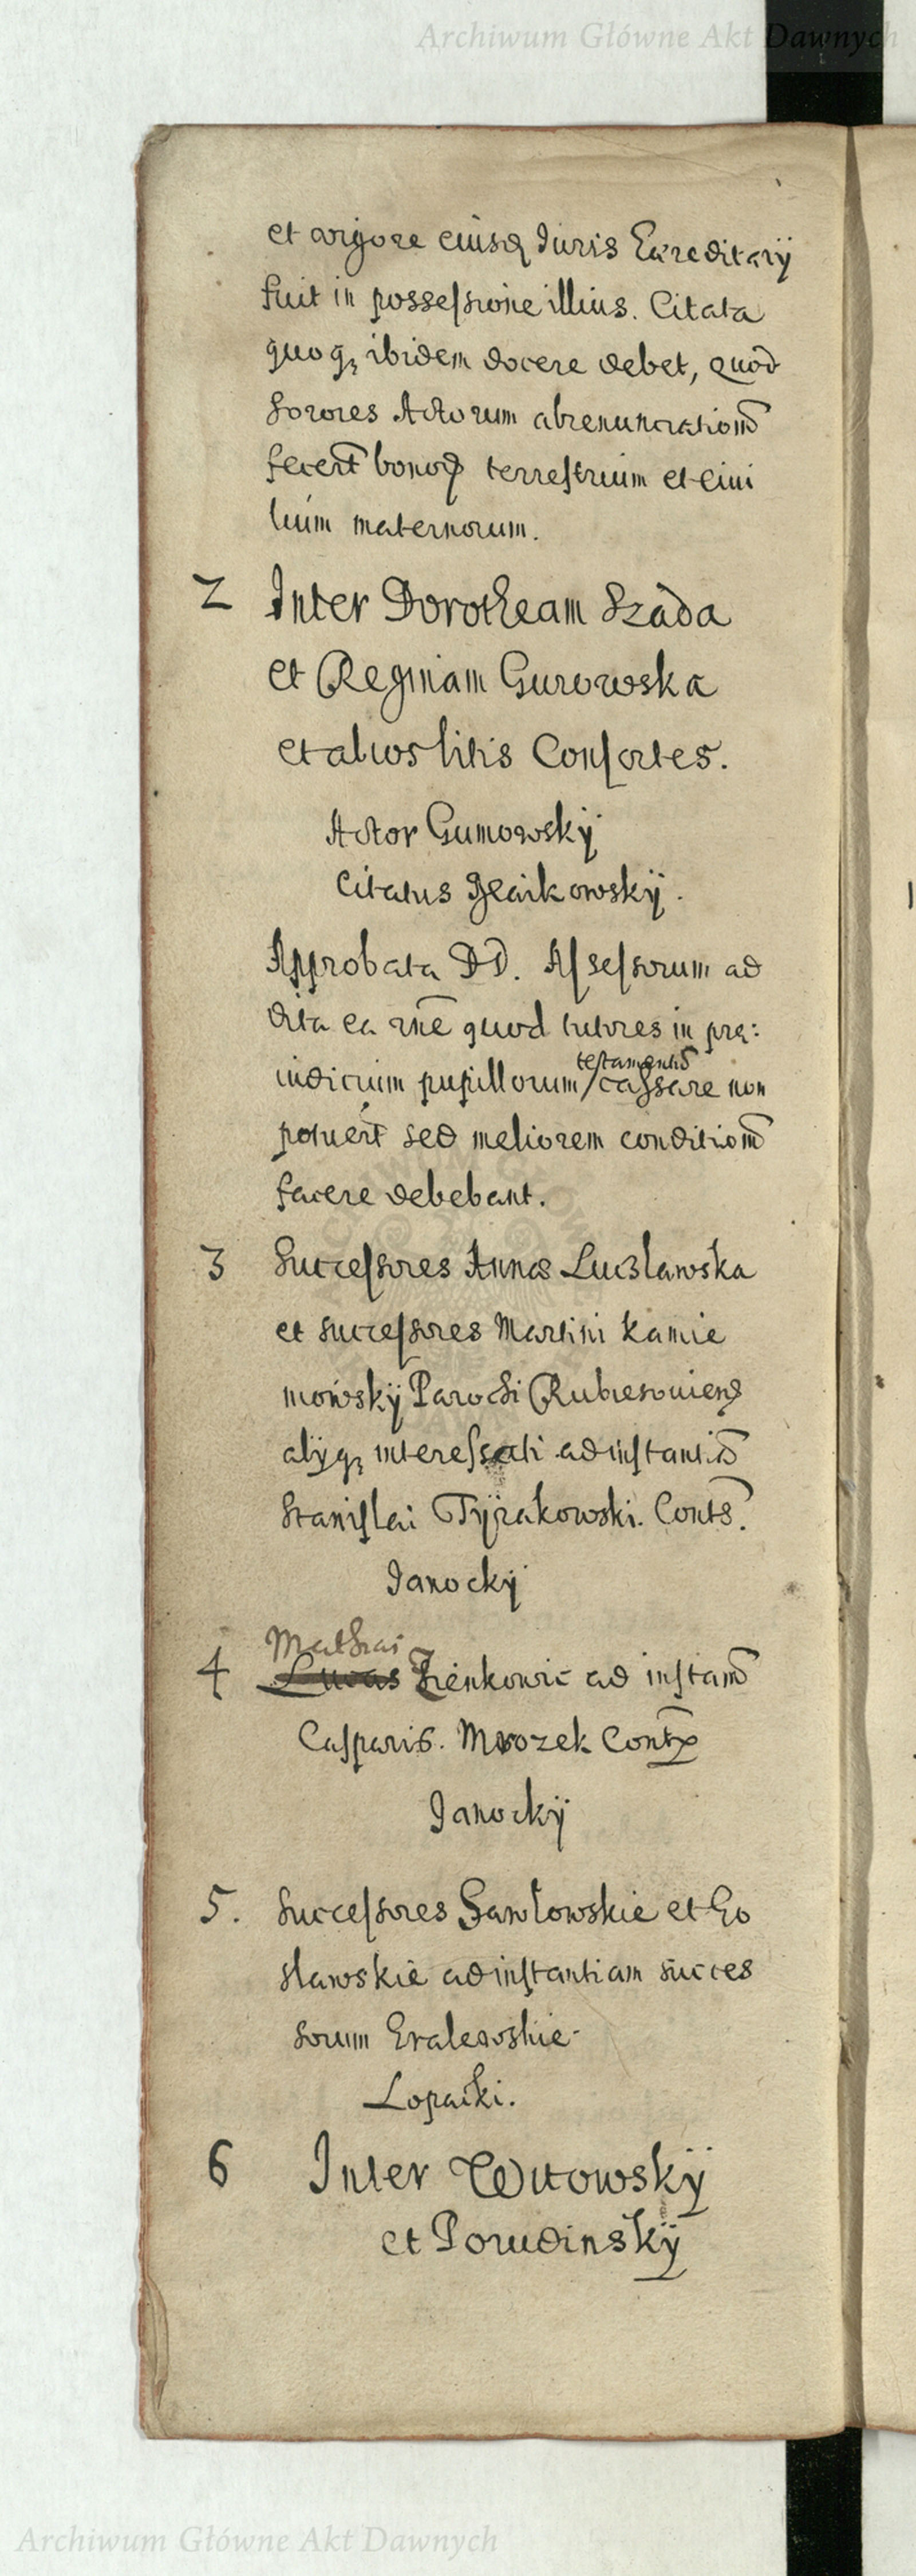 Archiwum Główne Akt Dawnych
et vigore eiusq Iuris Hæreditarÿ
fuit in possessione illius. Citata
quoqꝫ ibidem docere debet, quod
Sorores Actorum abrenunciationē
fecert̄ bonoꝝ terrestrium et ciui
lium maternorum.
2 Inter Dorotheam Szada
et Reginam Gurowska
et alios litis Consortes.
Actor Gumowskÿ
Citatus
Approbata DD. Assessorum ad
dita ea rn̄e quod tutores in præ:
testamentū
iudicium pupillorum / cassare non
potuert̄ sed meliorem conditionē
facere debebant.
3 Successores Annæ Lucslawska
et successores Martini Kamie
mowskÿ Parochi
alÿqꝫ interessati ad instantiā
Stanislai Tÿrakowski. Conts̄.
Ianockÿ
Mathias
4 Lucas Zienkowic ad instam̄
Casparis. Mrozek Contꝝ
Ianockÿ
5. Successores Gawlowskie et Go
slawskie ad instantiam succes
sorum
Lopacki.
6 Inter Witowskÿ
et Porudinskÿ
Archiwum Główne Akt Dawnych